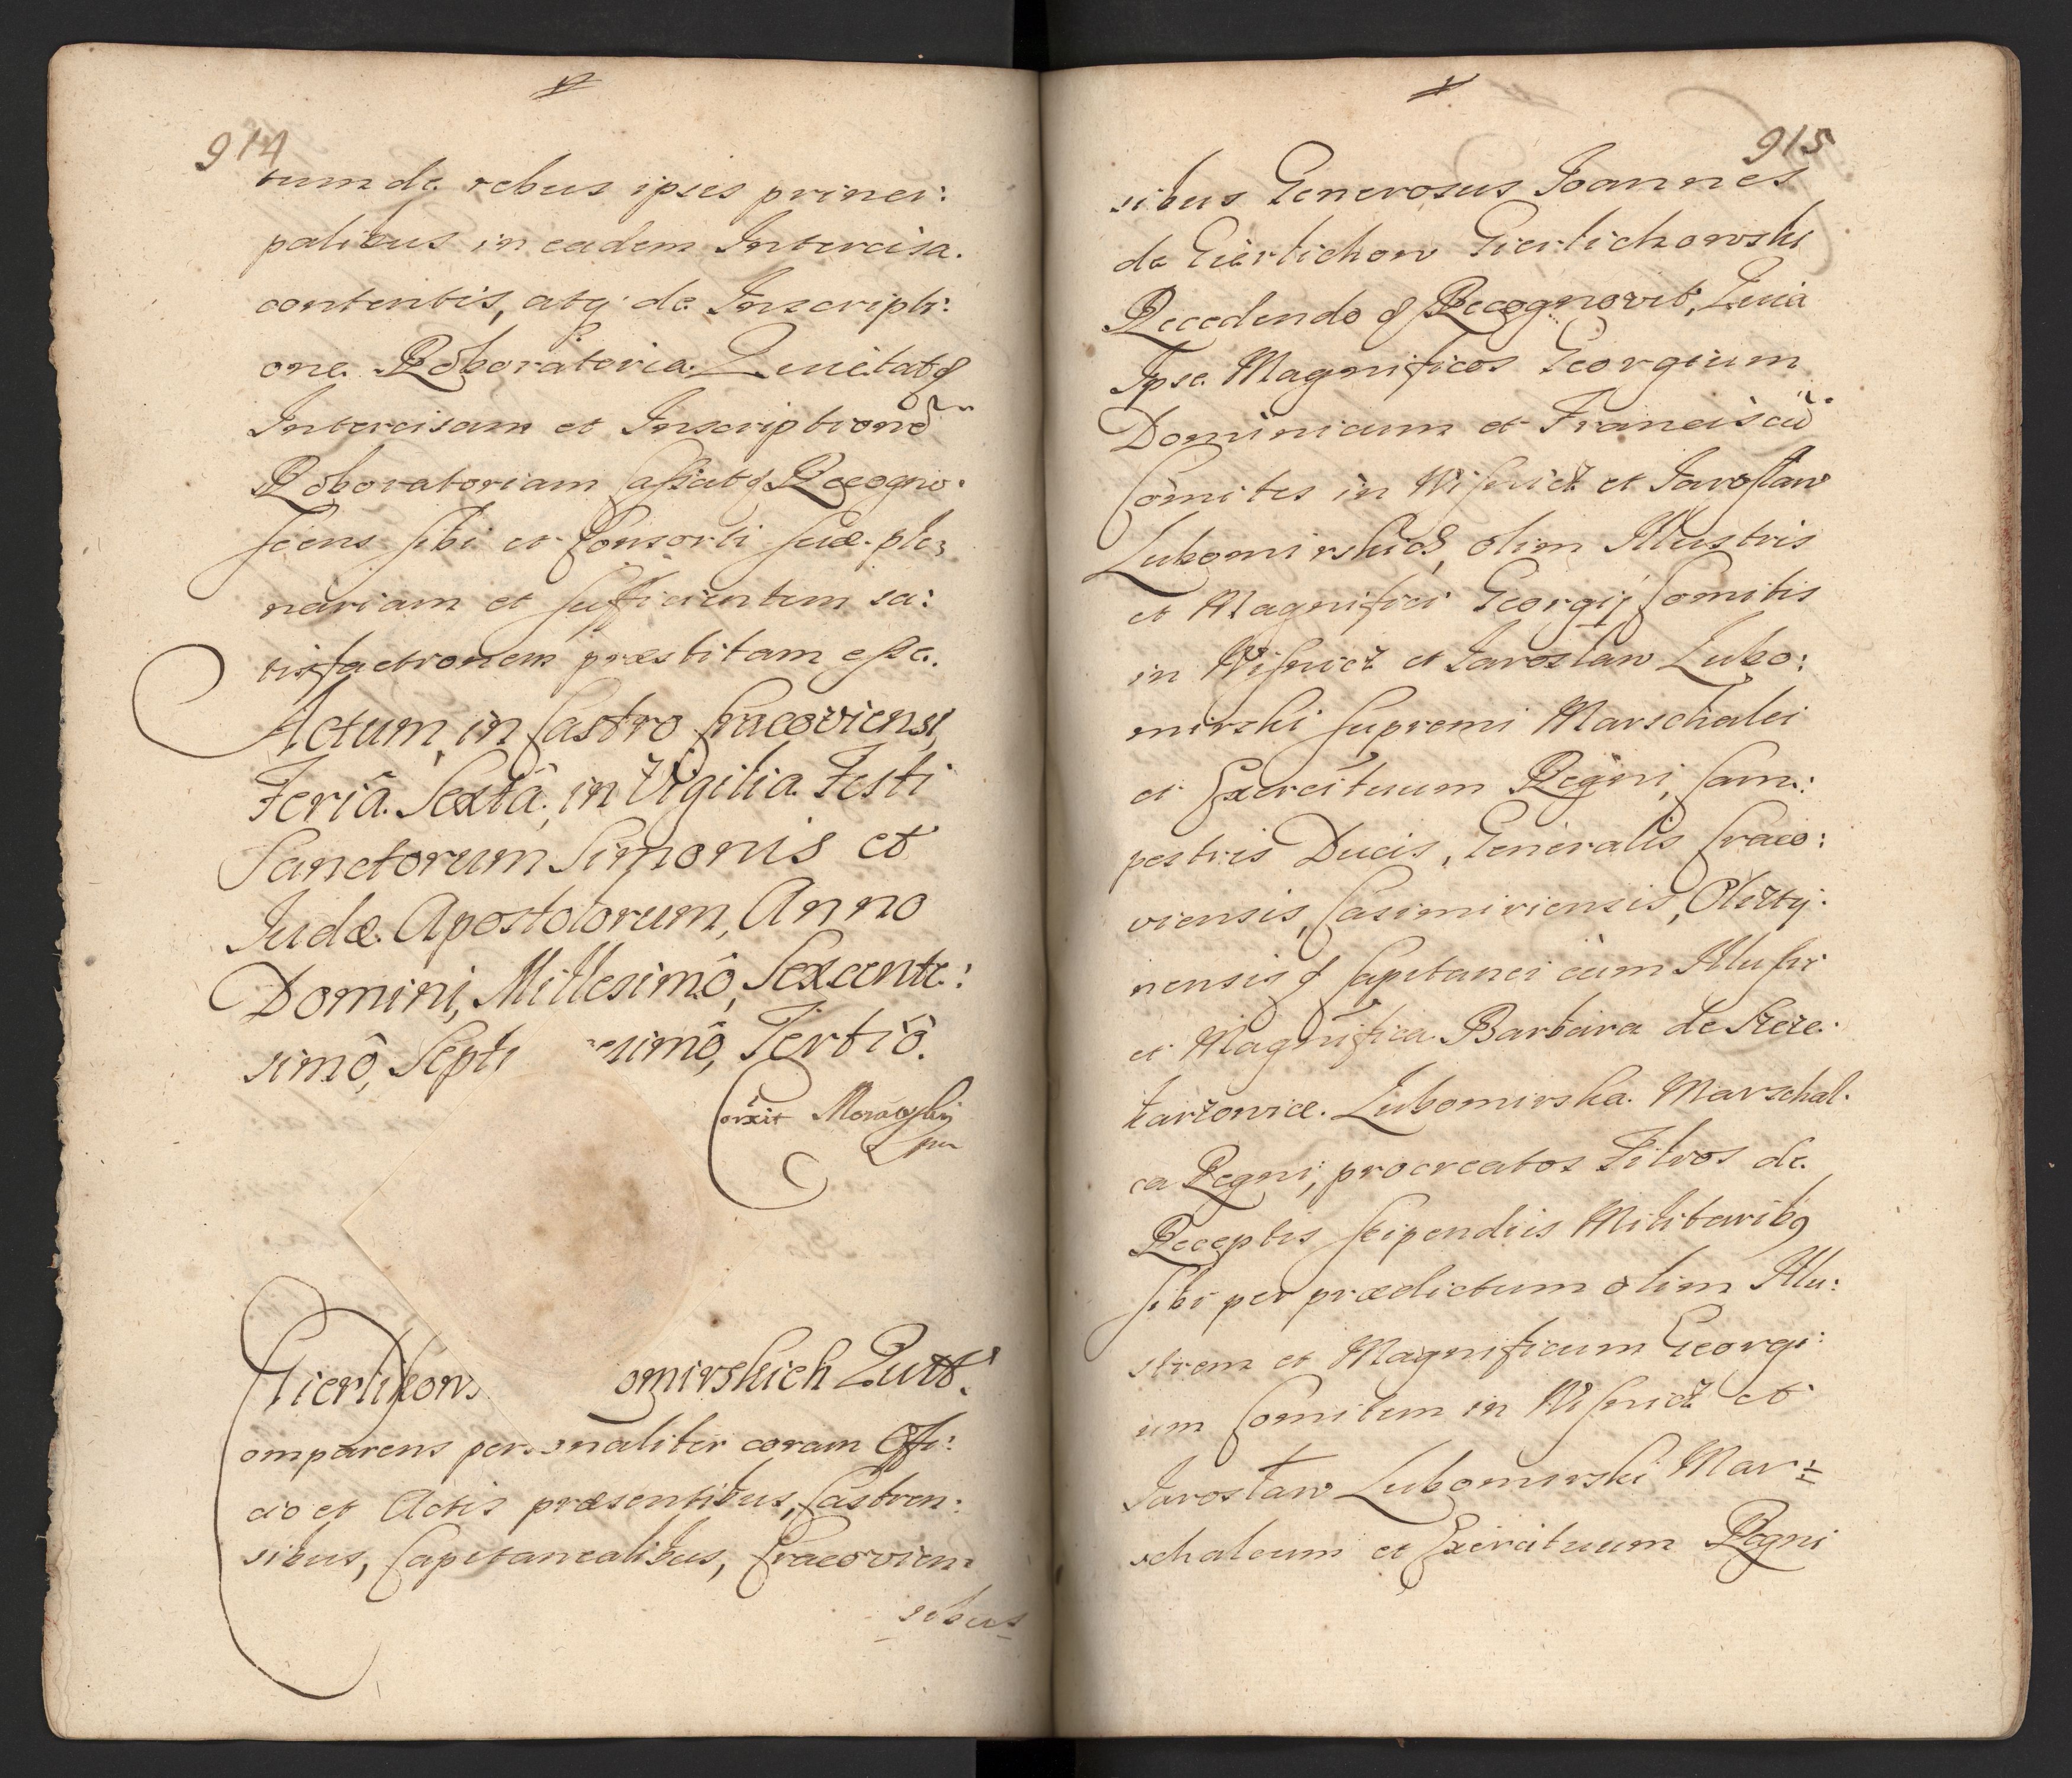 914
tumdq rebus ipsis princi:
palibus in eadem Intercisa.
contentis, atq de Inscripti:
one Roboratoria. Quietatq
Intercisam et Inscriptionẽ
Roboratoriam Cassatq Recogno.
scens sibi et Consorti suæ ple,
nariam et sufficientem sa:
tisfactionem præstitam esse.
Actum, in Castro Cracoviensi,
Feriâ Sextâ, in Vigilia Festi
Sanctorum Simonis et
Iudæ Apostolorum, Anno
Domini, Millesimô, Sexcente:
simô, Septu esimô, Tertiô.
Corxit
Gierlikows omirskich Quit.
omparens personaliter coram Offi:
cio et Actis præsentibus, Castren:
sibus, Capitanealibus, Cracovien:
sibus
915
sibus Generosus Ioannes
de Gierlichow Gierlichowski
Recedendo q Recognovit, Quia
Ipse Magnificos Georgium
Dominicum et Franciscũ
Comites in Wisnicz et Jaroslaw
Lubomirskich, olim Illustris
et Magnifici Georgij Comitis
in Wisnicz et Jaroslaw Lubo:
mirski Supremi Marschalci
et Exercituum Regni, Cam:
pestris Ducis, Generalis Craco:
viensis, Casimiriensis, Olszty:
nensis q Capitanei cùm Illustr
et Magnifica Barbara de
tarzowice Lubomirska Marschal.
ca Regni, procreatos Filios de
Receptis stipendiis Militaribq
sibi per prædictum olim Illu:
strem et Magnificum Georgi:
um Comitem in Wisnicz et
Jarosław Lubomirski Mar:
schalcum et Exercituum Regni